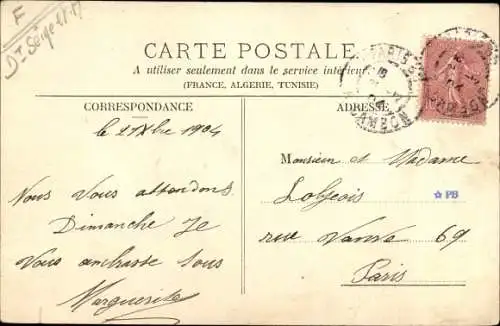 CARTE POSTALE
A utiliser seulement dans le service intérieur
(FRANCE, ALGERIE, TUNISIE)
CORRESPONDANCE
ADRESSE
le 21 Xbre 1904
Monsieur et Madame
Lobjeois
PB
rue Vanve 69
Paris
Nous Vous attendons
Dimanche Je
Vous embrasse tous
Marguerite
PARIS
CAMBON